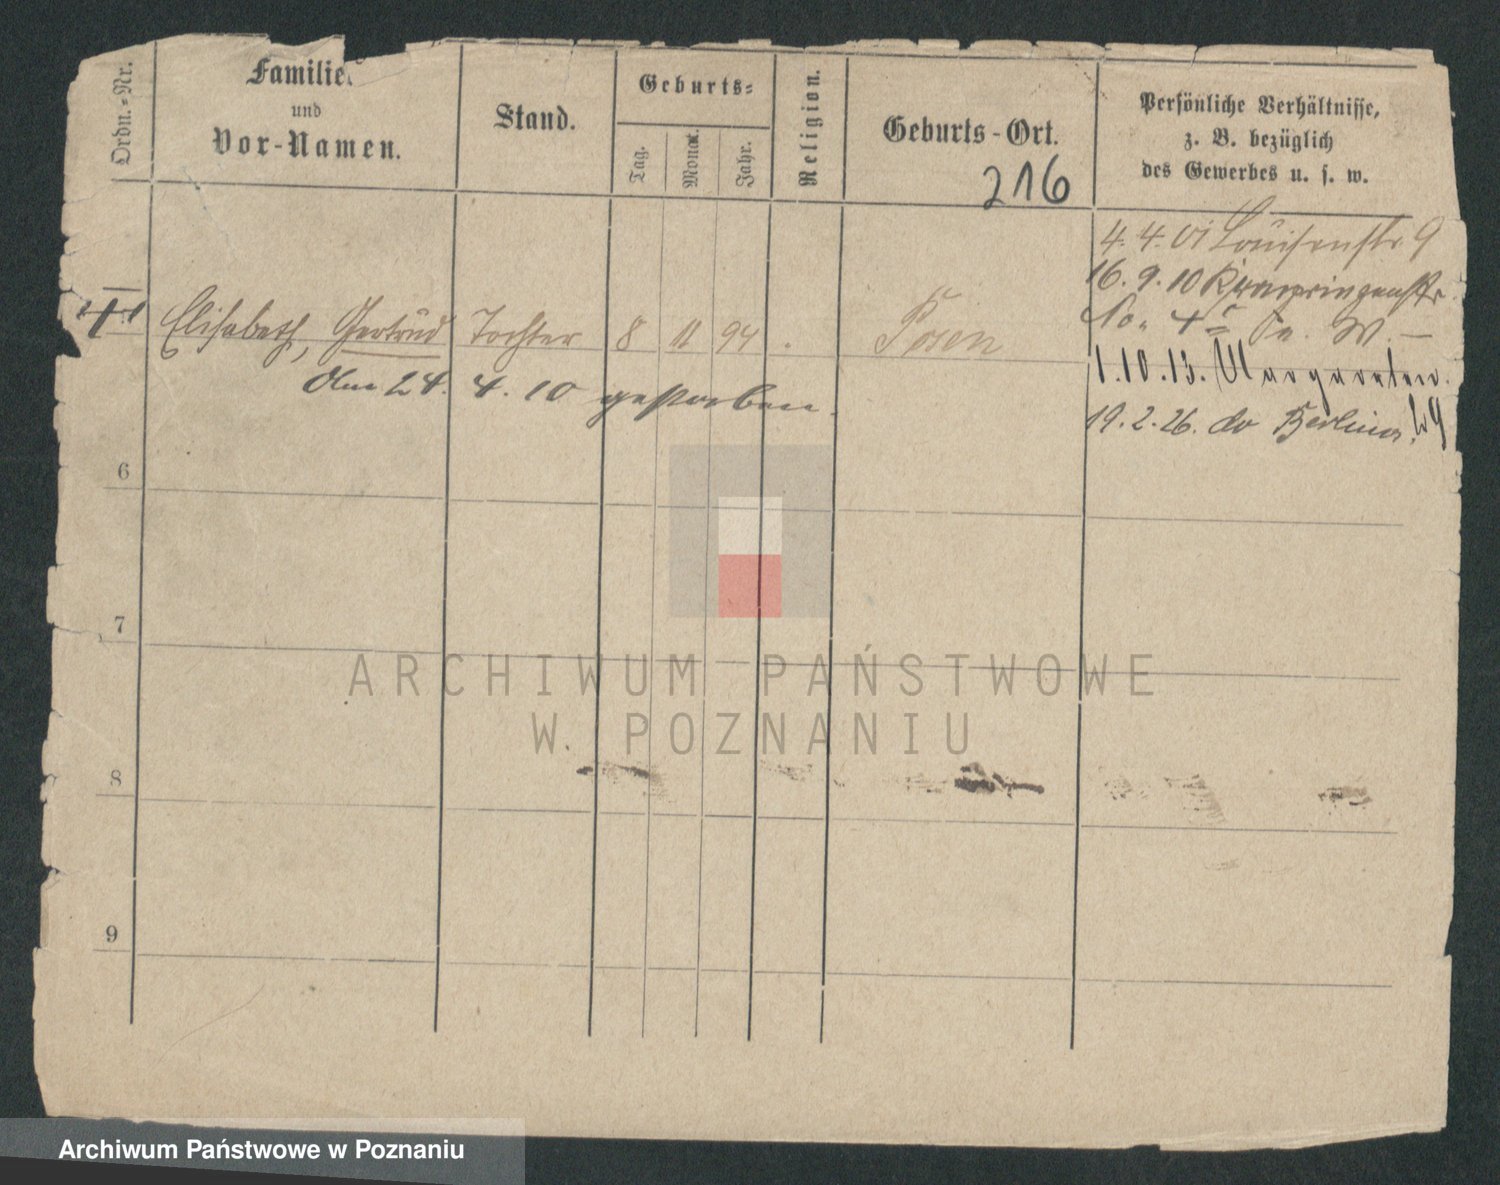 Ordn.=Nr.
Familie
und
Vor-Namen.
Stand.
Geburts=
Tag.
Monat.
Jahr.
Religion.
Geburts-Ort.
Persönliche Verhältnisse,
z. B. bezüglich
des Gewerbes u. s. w.
216
4. 4. 01 Louisenstr 9
16. 9. 10 Kronprinzenstr
Elisabeth, Gertrud Tochter 8 11 94 Posen
am 24. 4. 10 gestorben.
1. 10. 13. Margareten
19. 2. 26. do Berliner
6
7
8
9
ARCHIWUM PAŃSTWOWE
W POZNANIU
Archiwum Państwowe w Poznaniu